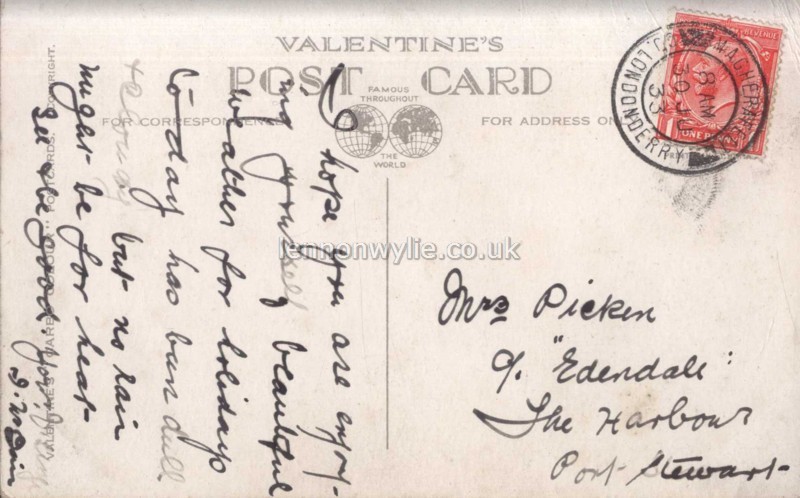 VALENTINE'S
POST CARD
FAMOUS
THROUGHOUT
THE
WORLD
FOR CORRESPONDENCE
FOR ADDRESS ONLY
REVENUE
ONE PENNY
MAGHERAFELT
CO. LONDONDERRY
8 AM
30 JU
33
I hope you are enjoy-
ing yourself beautiful
weather for holidays
to-day has been dull
but no rain
might be for heat
See
VALENTINE'S POSTCARDS. COPYRIGHT.
lennonwylie.co.uk
Mrs Picken
c/o "Edendale"
The Harbour
Port Stewart